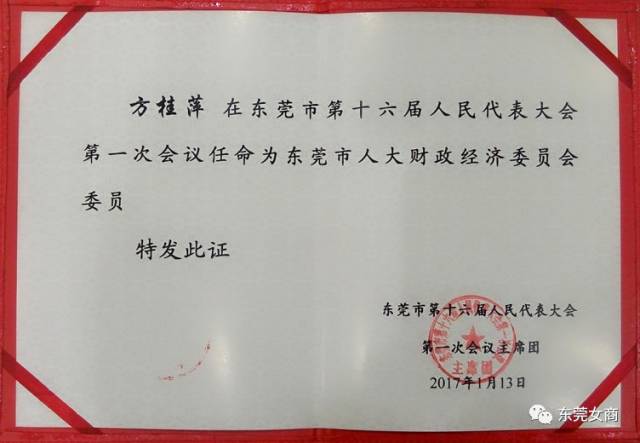 方桂萍 在东莞市第十六届人民代表大会
第一次会议任命为东莞市人大财政经济委员会
委员
特发此证
东莞市第十六届人民代表大会
第一次会议主席团
主席团
2017年1月13日
东莞女商